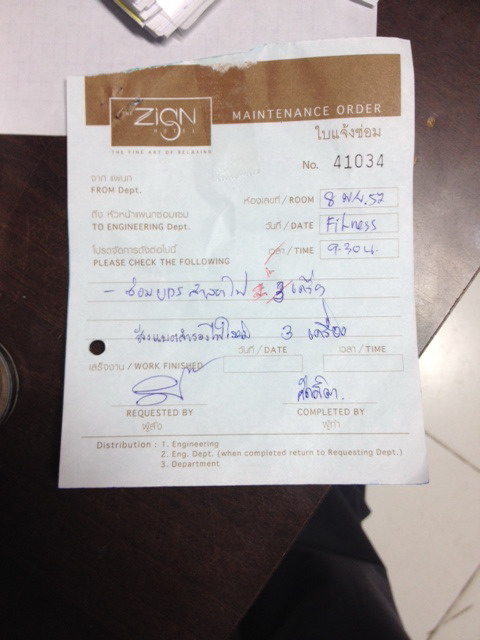 THE ZIGN
HOTEL
THE FINE ART OF RELAXING
MAINTENANCE ORDER
ใบแจ้งซ่อม
No. 41034
จาก แผนก
FROM Dept.
ห้องเลขที่ / ROOM 8 พ.ย. 57
ถึง หัวหน้าแผนกซ่อมแซม
TO ENGINEERING Dept.
วันที่ / DATE Fitness
โปรดจัดการดังต่อไปนี้
เวลา / TIME 9.30 น.
PLEASE CHECK THE FOLLOWING
- ซ่อม UPS สำรองไฟ
3 เครื่อง
เสร็จงาน / WORK FINISHED
วันที่ / DATE
เวลา / TIME
REQUESTED BY
ผู้สั่ง
COMPLETED BY
ผู้ทำ
Distribution : 1. Engineering
2. Eng. Dept. (when completed return to Requesting Dept.)
3. Department